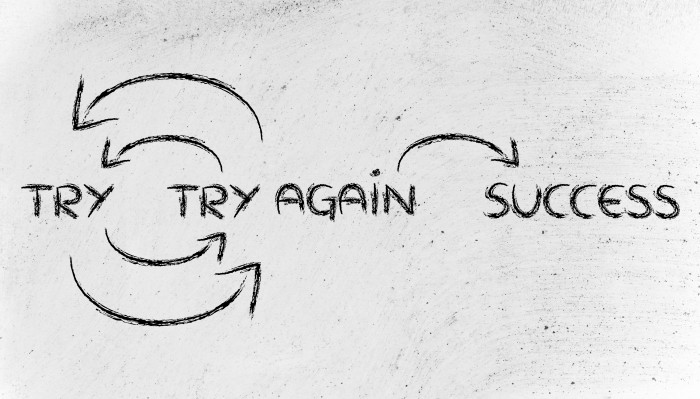 TRY TRY AGAiN SUCCESS